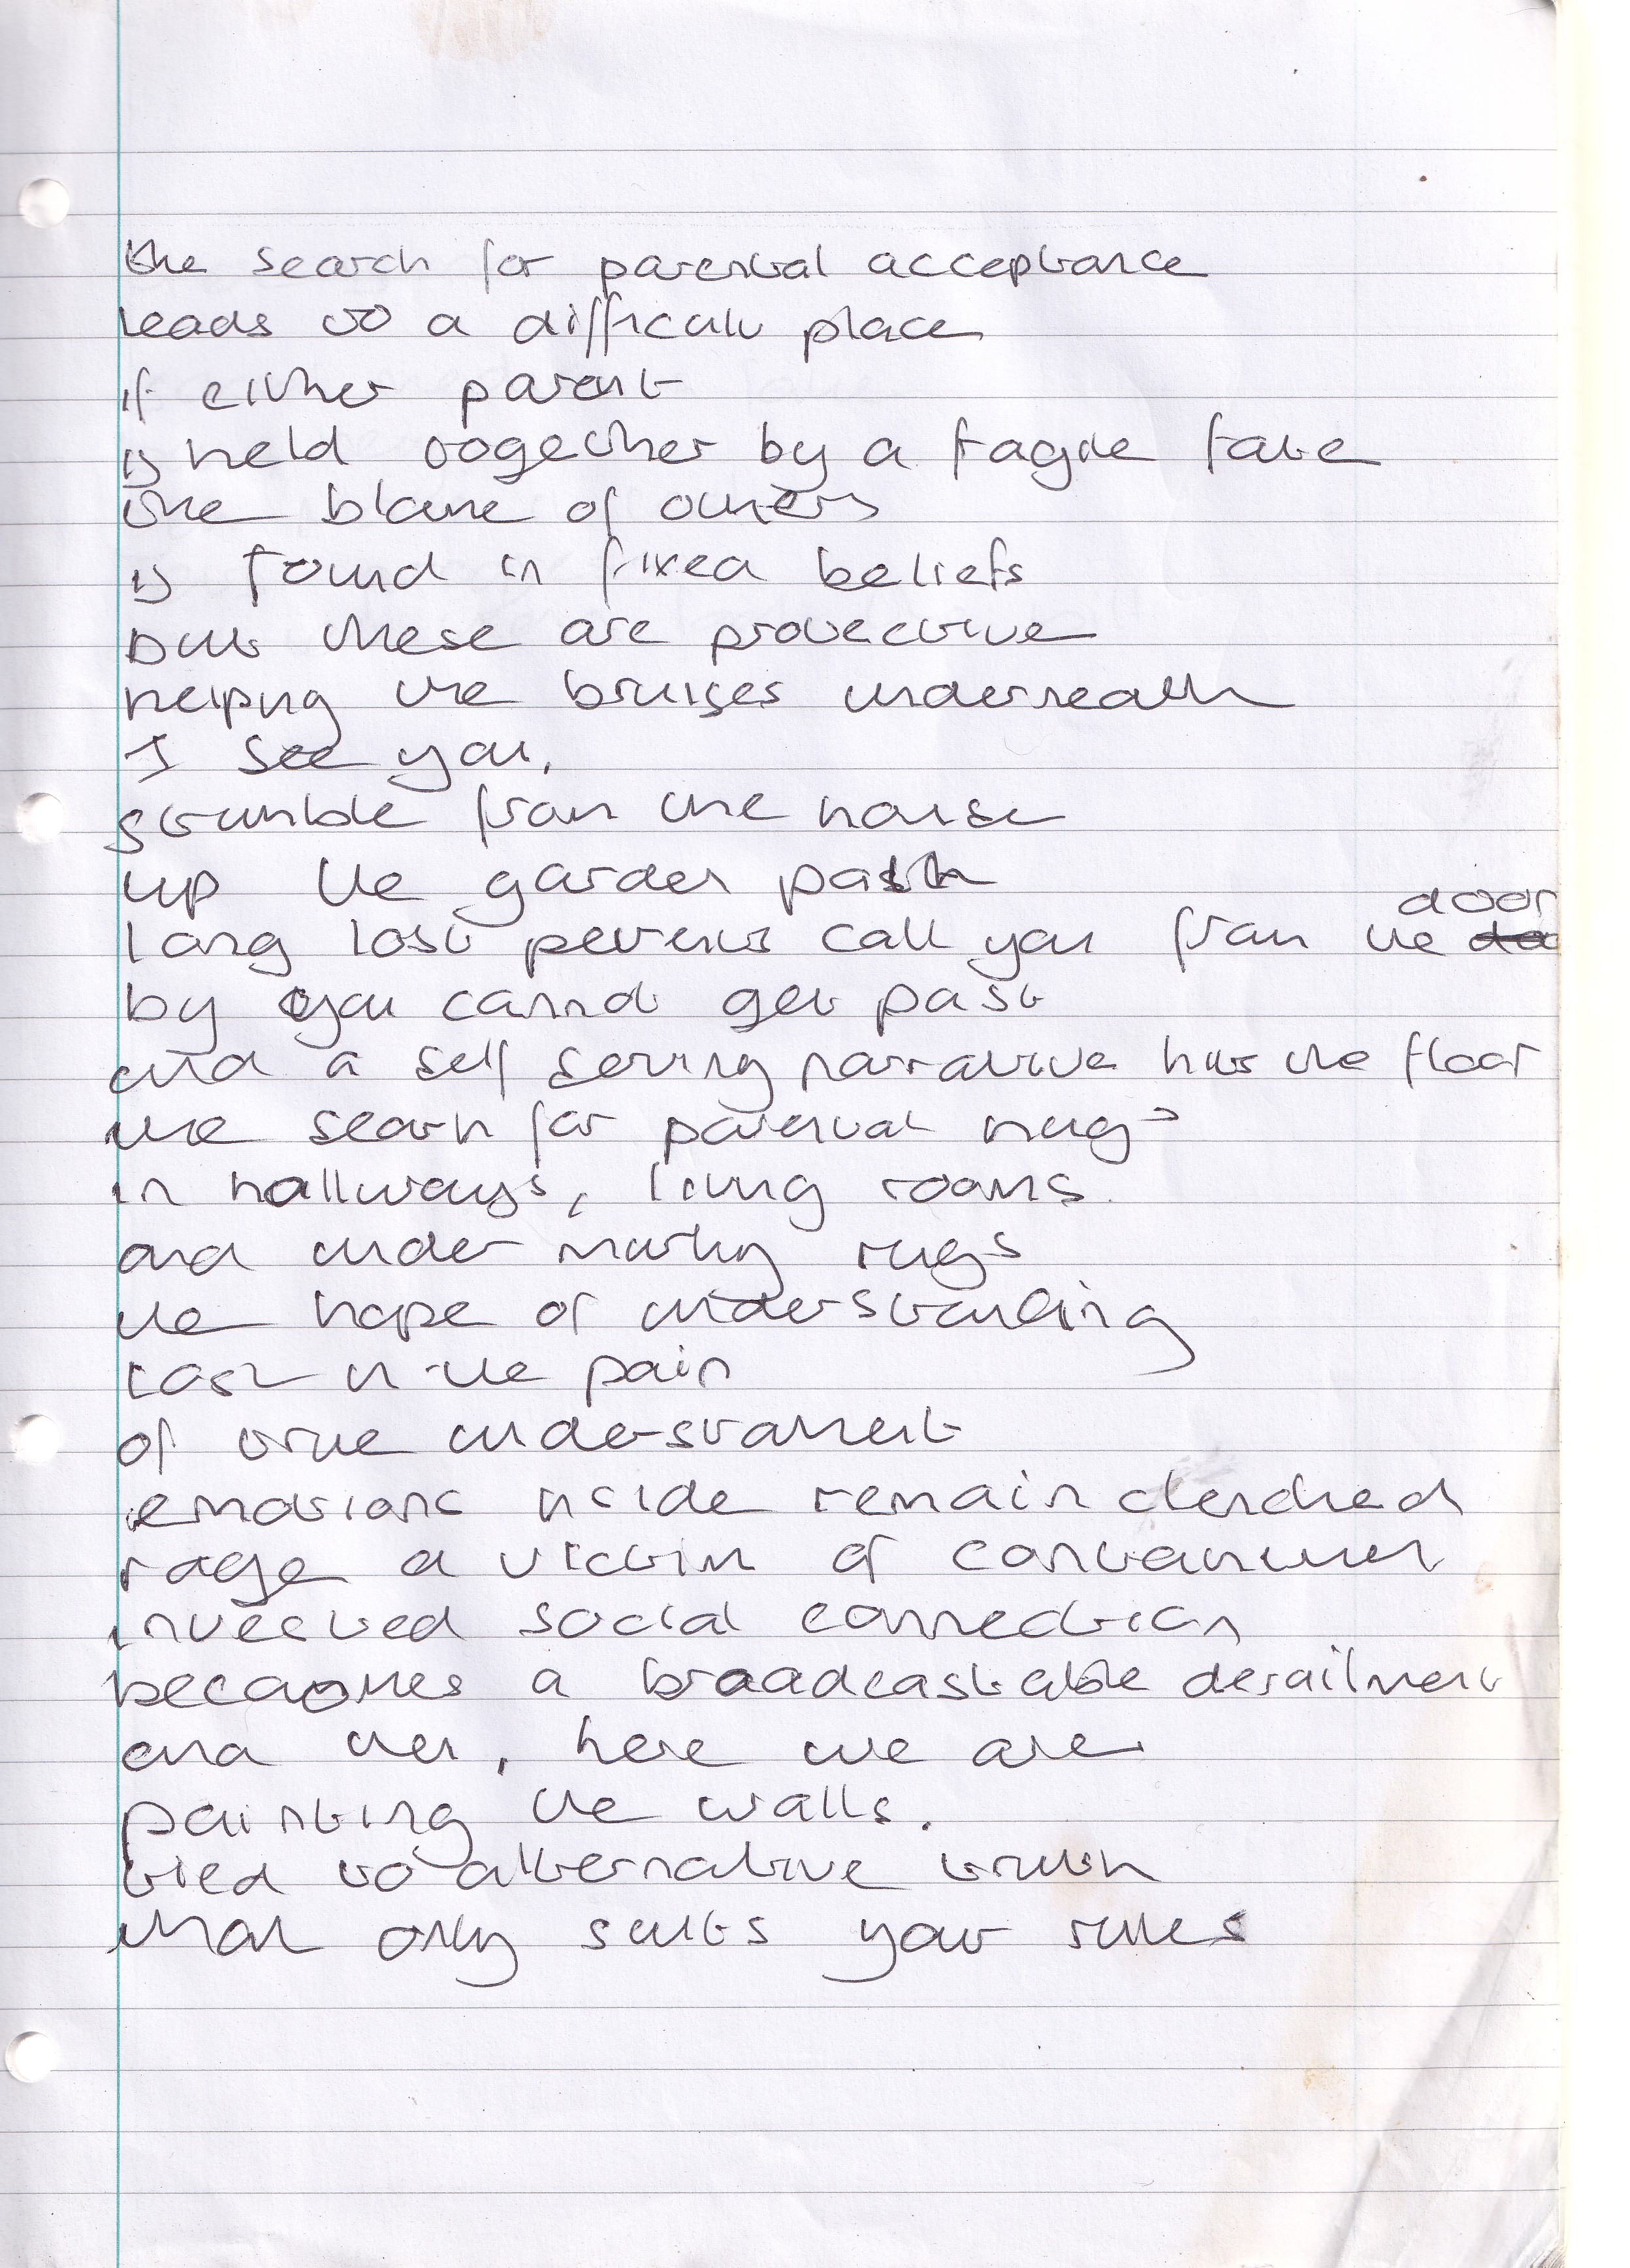 the search for parental acceptance
leads to a difficult place
if either parent
is held together by a fragile fate
the blame of others
is found in fixed beliefs
but these are protective
helping the bruises underneath
I see you,
stumble from the house
up the garden path
long lost call you from the door
by you cannot get past
and a self serving narrative hits the floor
the search for parental hugs
in hallways, living rooms
and under rugs
the hope of understanding
lost in the pain
of true
emotions inside remain clenched
rage a victim of containment
invected social connection
becaomes a broadcastable derailment
and then, here we are
painting the walls.
tied to alternative truth
that only suits your rules